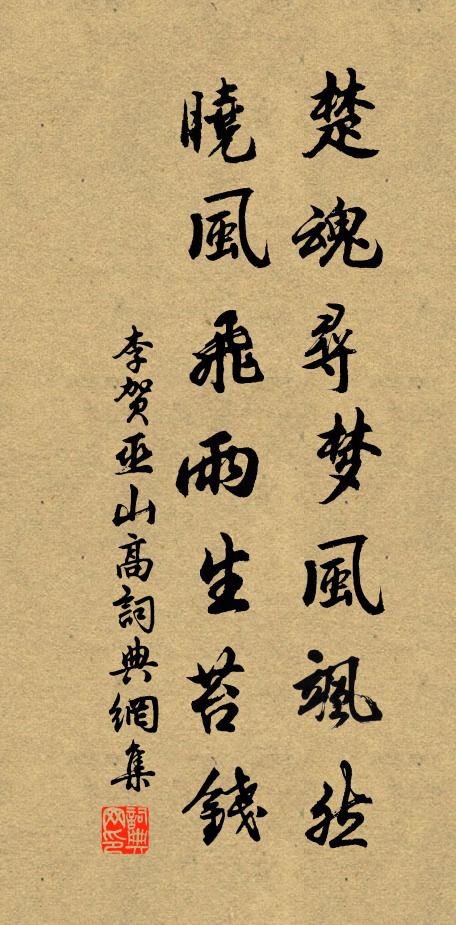 楚魂尋梦風颯然
曉風飛雨生苔錢
李贺巫山高詞典網集
詞典网印